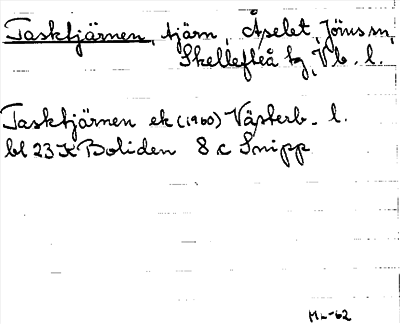 Tasktjärnen, tjärn, Åselet, Jörns sn,
Skellefteå tg, Vb. l.
Tasktjärnen ek (1960) Västerb. l.
bl 23 K Boliden 8 c Snipp
-62